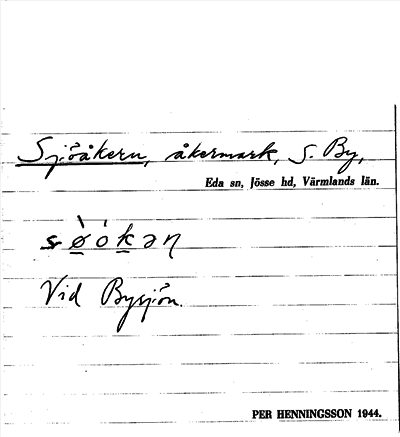 Sjöåkern, åkermark, S. By,
Eda sn, Jösse hd, Värmlands län.
Vid Bysjön.
PER HENNINGSSON 1944.